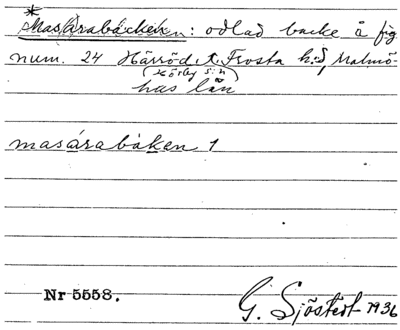 *Masarabäcken: odlad backe å fig
num. 24 Härröd, Frosta hd, Malmö-
(Hörby s:n)
hus län
masárabákən 1
Nr 5558.
G. Sjöstedt 1936